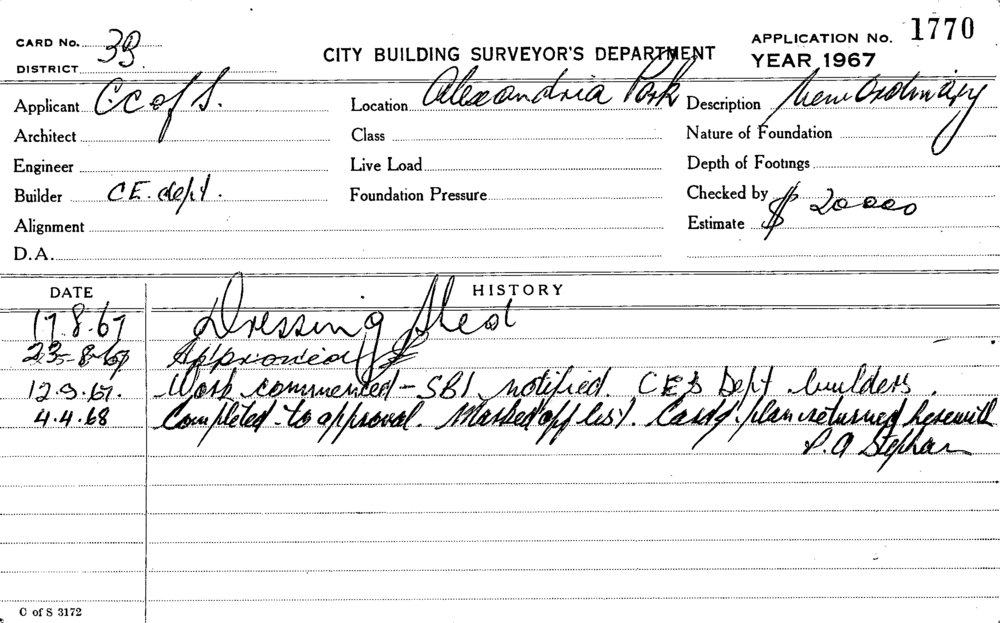 CARD No. 33
DISTRICT
CITY BUILDING SURVEYOR'S DEPARTMENT
APPLICATION No. 1770
YEAR 1967
Applicant C C of S.
Location Alexandria Park
Description New Ordinary
Architect
Class
Nature of Foundation
Engineer
Live Load
Depth of Footings
Builder C E. dept.
Foundation Pressure
Checked by
Alignment
Estimate $ 20000
D.A.
DATE
HISTORY
17.8.67 Dressing Shed
23-8-67 Approved
12.9.67. Work commenced - SBI notified. CE's Dept builders.
4.4.68 Completed to approval. Marked off list. Card & plan returned herewith
P. A Stephan
C of S 3172